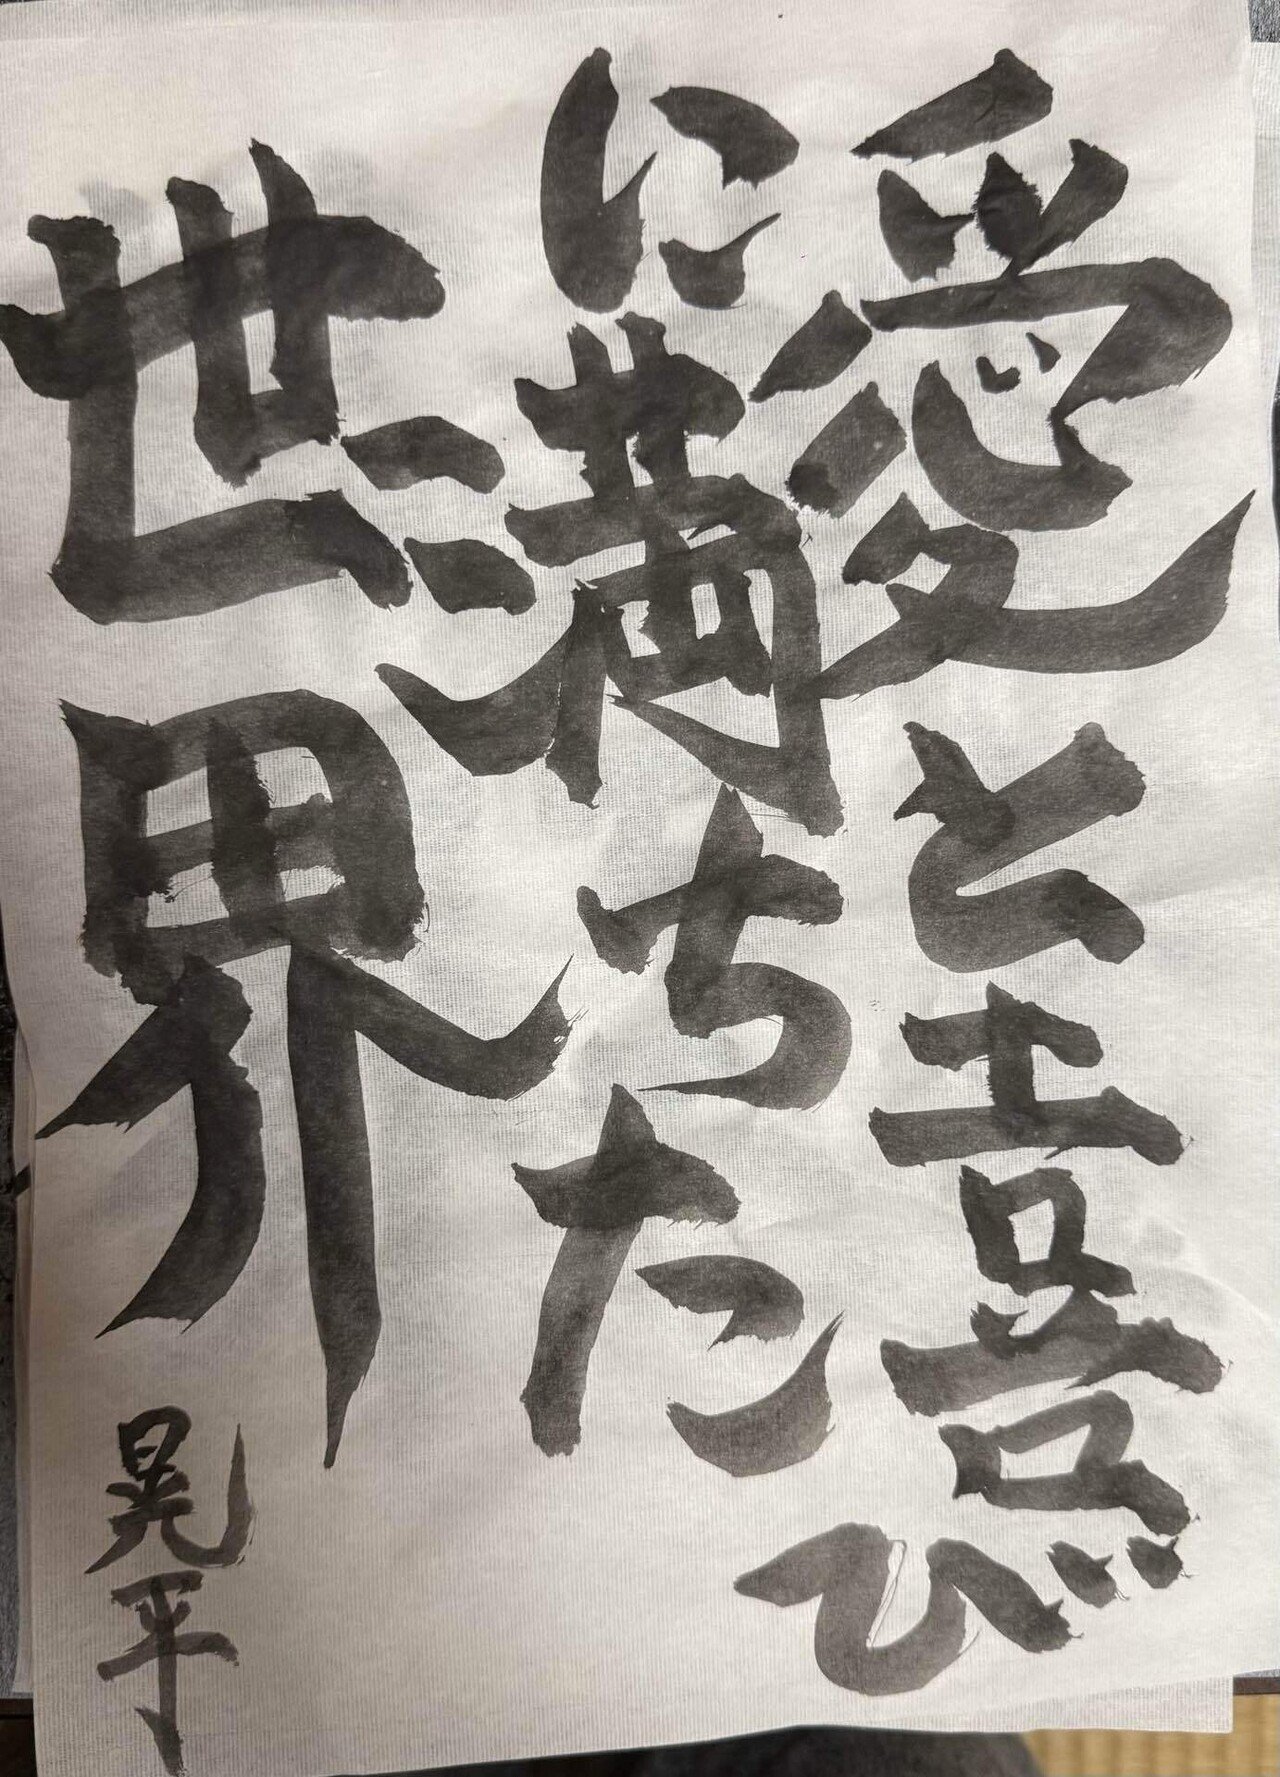 愛と喜び
に満ちた
世界
晃平